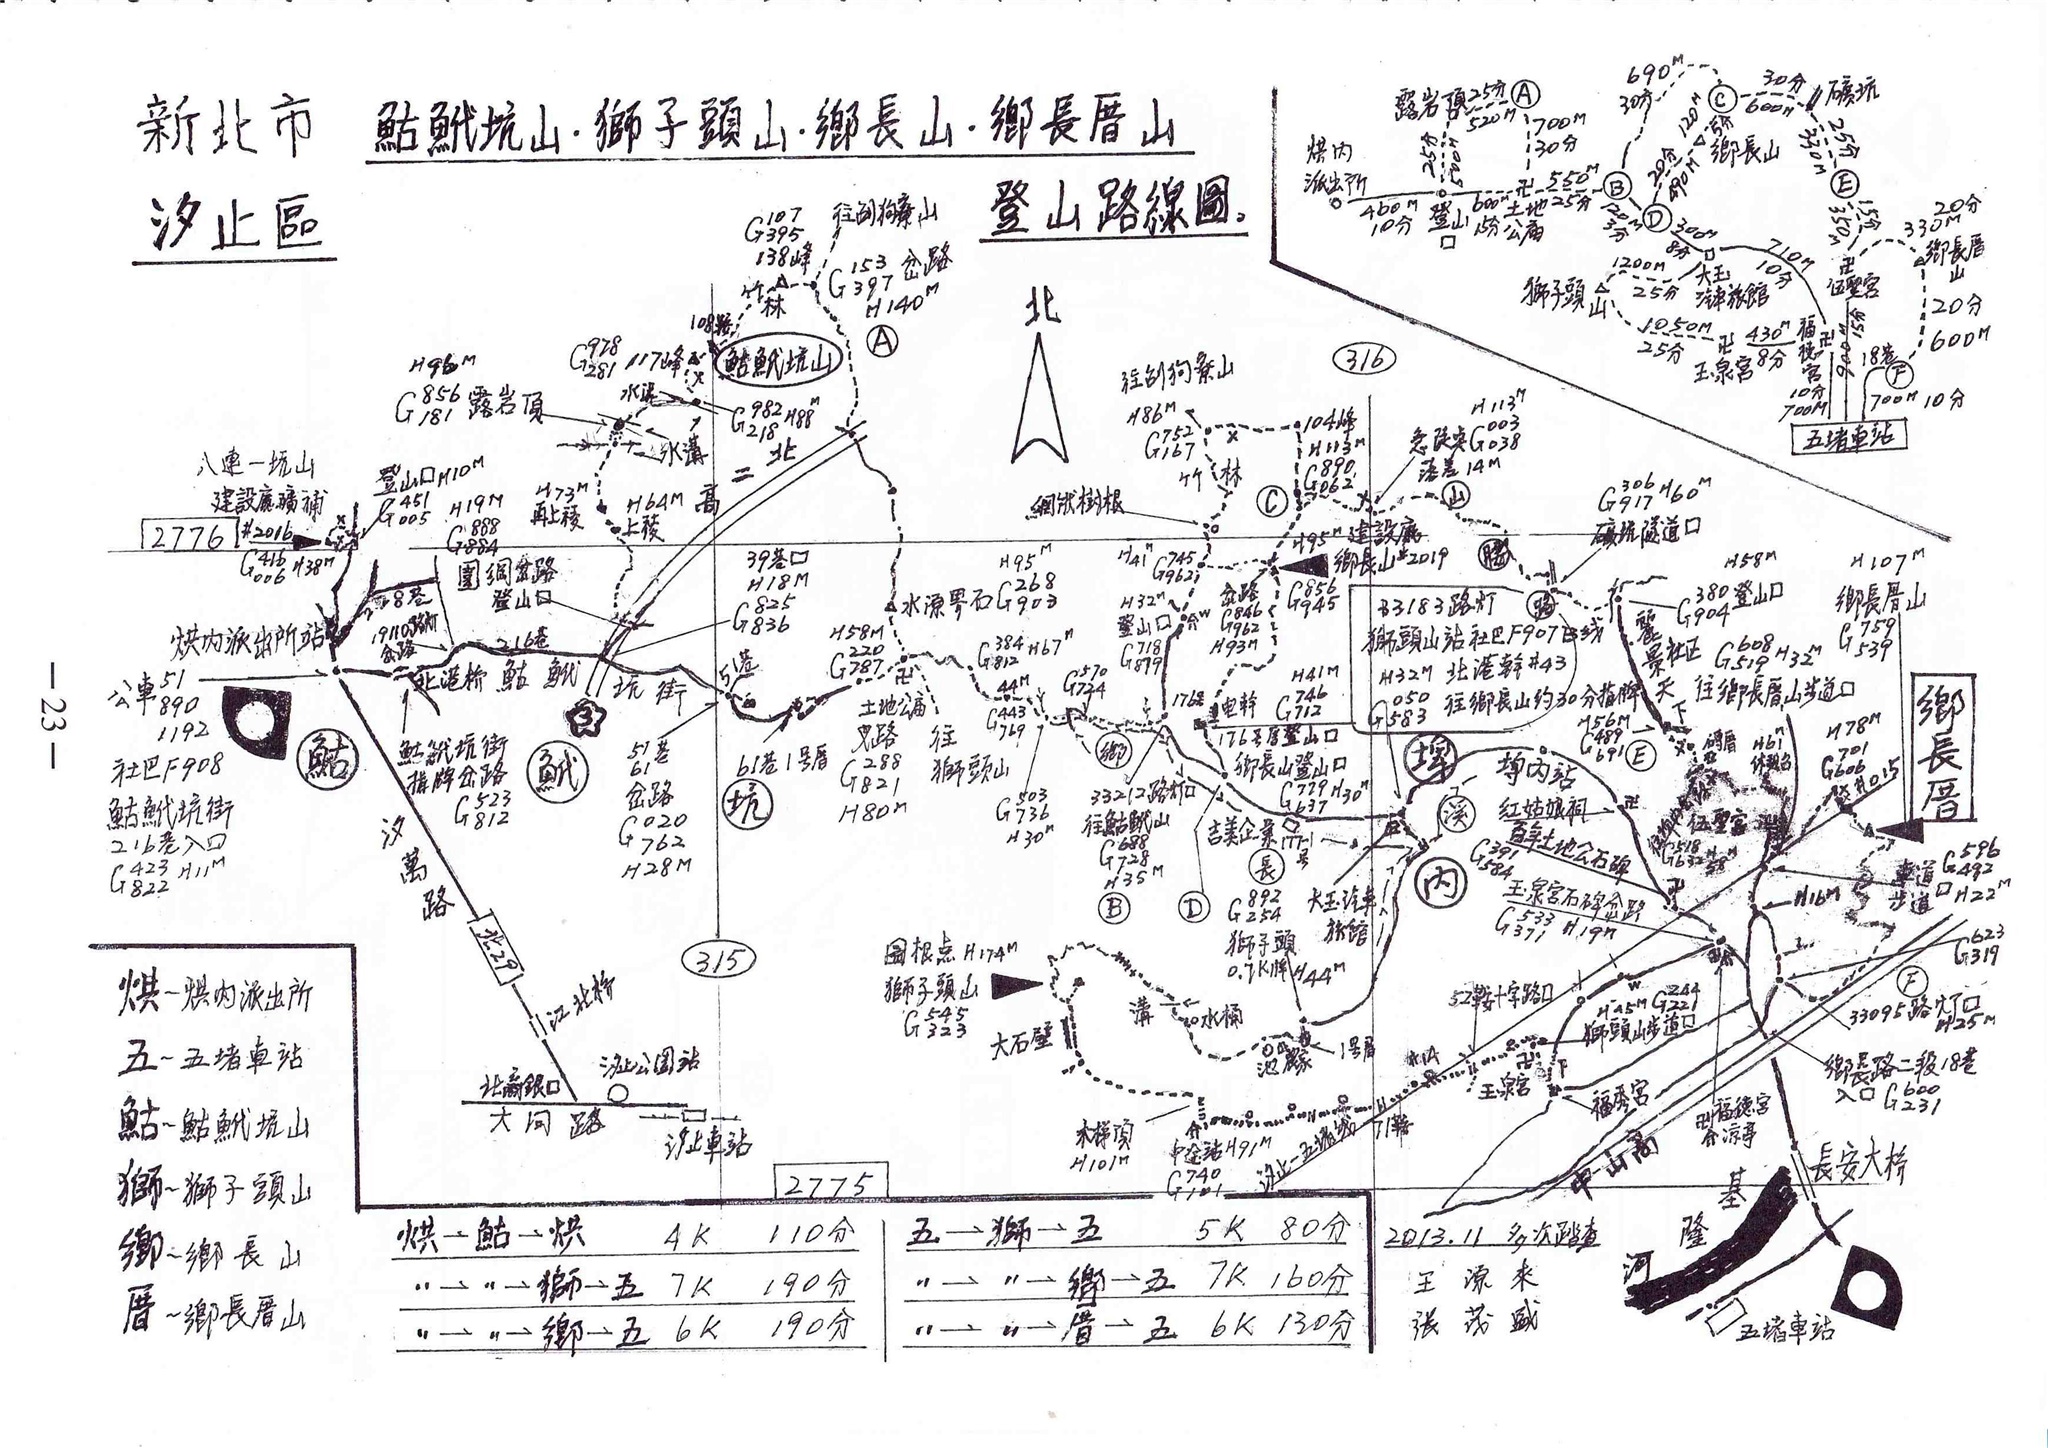 新北市
汐止區
鮕鮘坑山·獅子頭山·鄉長山·鄉長厝山
登山路線圖.
露岩頂
25分
520M
Ⓐ
700M
30分
25分
500M
烘內
派出所
460M
10分
登山口
600M
15分
土地
公廟
550M
25分
Ⓑ
690M
30分
Ⓒ
30分
600M
礦坑
120M
5分
鄉長山
20分
490M
25分
330M
Ⓔ
120M
3分
Ⓓ
300M
8分
15分
350M
20分
330M
鄉長厝
山
710M
10分
大王
汽車旅館
伍聖宮
獅子頭
山
1200M
25分
1050M
25分
玉泉宮
430M
8分
福德宮
20分
600M
18巷
Ⓕ
10分
700M
700M 10分
五堵車站
G 107 395
138峰
往倒狗寮山
竹林
G 153 397 岔路
H140M
Ⓐ
北
鮕鮘坑山
G 978 281
117峰
水溝
H96M
G 856 181 露岩頂
G 982 218 H88M
水溝
北二高
316
往倒狗寮山
H86M
G 752 167
竹林
104峰
H113M
G 890 062
H113M
G 003 038
落差14M
Ⓒ
網狀樹根
八連一坑山
建設廳礦補
#2016
2776
G 416 006 H38M
登山口H10M
G 451 005
H19M
G 888 884
H73M
再上稜
H64M
上稜
圍網岔路
登山口
39巷口
H18M
G 825 836
H95M
G 268 903
水源界石
H41M
G 745 962
H95M
建設廳
鄉長山#2019
G 856 945
岔路
G 846 962
H93M
G 306 917 H60M
礦坑隧道口
H58M
G 380 904 登山口
H107M
鄉長厝山
G 759 539
烘內派出所站
公車51
890
1192
社巴F908
鮕鮘坑街
216巷入口
G 423 822 H11M
8巷
岔路
北港橋
216巷
鮕鮘坑街
鮕鮘坑街
指牌岔路
G 523 812
51巷
51巷
61巷
岔路
G 020 762
H28M
61巷1號厝
H58M
G 220 787
土地公廟
叉路
G 288 821
H80M
往
獅頭山
G 384 812 H67M
44M
G 443 769
G 570 724
G 503 736
H30M
H32M
登山口
G 718 879
176號
電幹
H41M
G 746 712
176號厝登山口
鄉長山登山口
G 779 637 H30M
33212路燈
往鮕鮘山
G 688 728
H35M
Ⓑ
Ⓓ
吉美企業
177-1號
33183路灯
獅頭山站社巴F907B線
H32M 北港幹#43
G 050 583 往鄉長山約30分指牌
麗景社區
天下
G 608 519 H32M
往鄉長厝山步道口
H56M
G 489 691
Ⓔ
H78M
G 701 606
H61M
鄉長厝
鮕
鮘
坑
鄉
長
埤
內
溪
山
埤內站
紅姑娘祠
百年土地公石碑
G 391 584
玉泉宮石碑岔路
G 533 371 H19M
伍聖宮
G 518 632 H58M
車道
步道口
G 596 492
H22M
H16M
G 623 319
Ⓕ
33095路灯口
H25M
鄉長路二段18巷
入口 G 600 231
汐萬路
北29
315
圖根点H174M
獅子頭山
G 545 323
大石壁
溝
水桶
G 892 254
獅子頭
0.7K牌
H44M
大王汽車
旅館
1號厝
池
52鞍十字路口
H45M G 244 221
獅頭山步道口
玉泉宮
福秀宮
福德宮
涼亭
木梯頂
H101M
中途站H91M
G 740 101
71鞍
江北橋
汐止公園站
大同路
汐止車站
2775
中山高
長安大橋
基隆河
五堵車站
烘~烘內派出所
五~五堵車站
鮕~鮕鮘坑山
獅~獅子頭山
鄉~鄉長山
厝~鄉長厝山
烘→鮕→烘 4K 110分
〃→〃→獅→五 7K 190分
〃→〃→鄉→五 6K 190分
五→獅→五 5K 80分
〃→〃→鄉→五 7K 160分
〃→〃→厝→五 6K 130分
2013.11 多次踏查
王源來
張茂盛
—23—